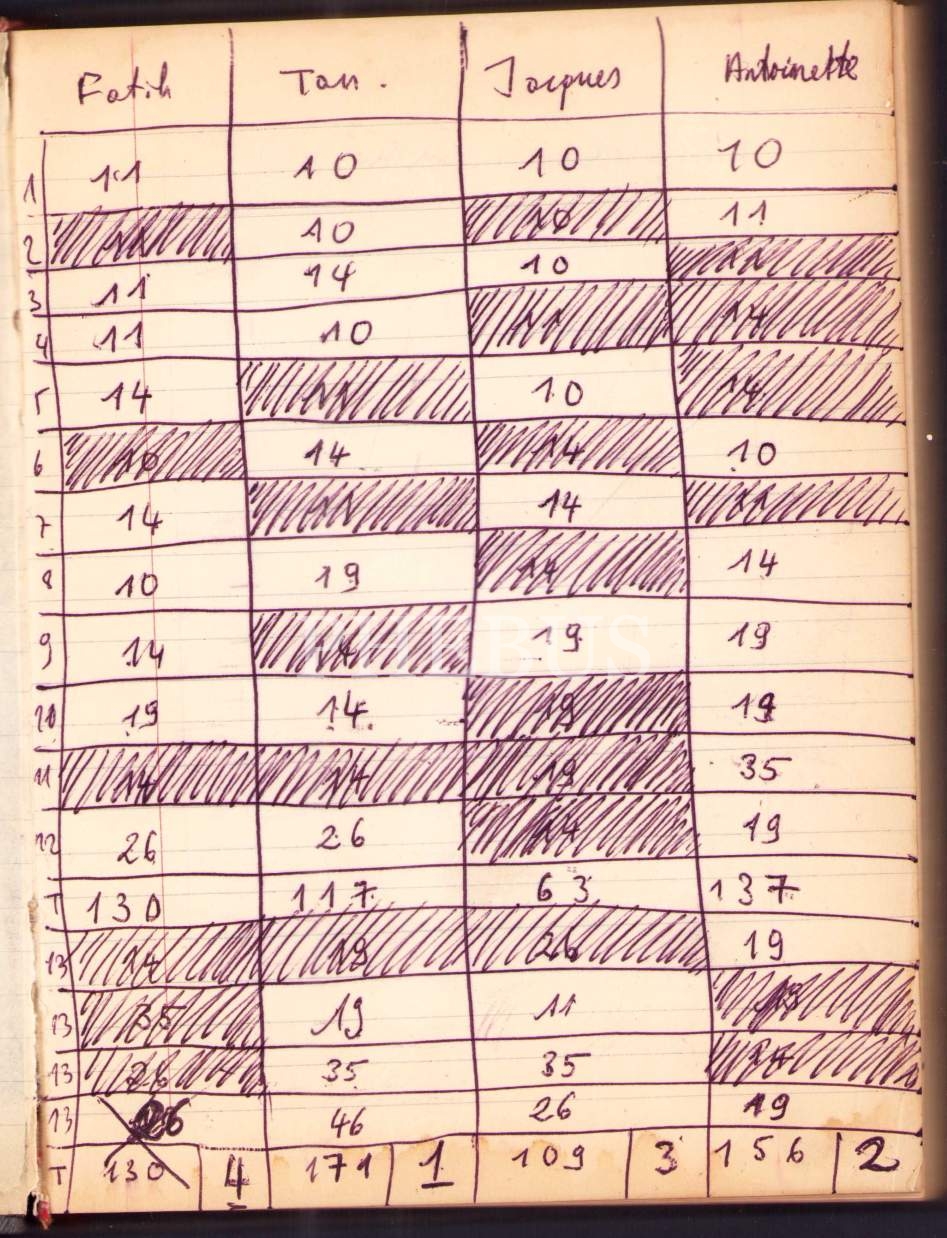 Fatih Tan. Jacques Antoinette
1 11 10 10 10
2 11 10 10 11
3 11 14 10 11
4 11 10 11 14
5 14 11 10 14
6 10 14 14 10
7 14 11 14 11
8 10 19 14 14
9 14 14 19 19
10 19 14 19 19
11 14 14 19 35
12 26 26 14 19
T 130 117 63 137
13 14 19 26 19
13 35 19 11 19
13 26 35 35 14
13 26 46 26 19
T 130 4 171 1 109 3 156 2
PHEBUS